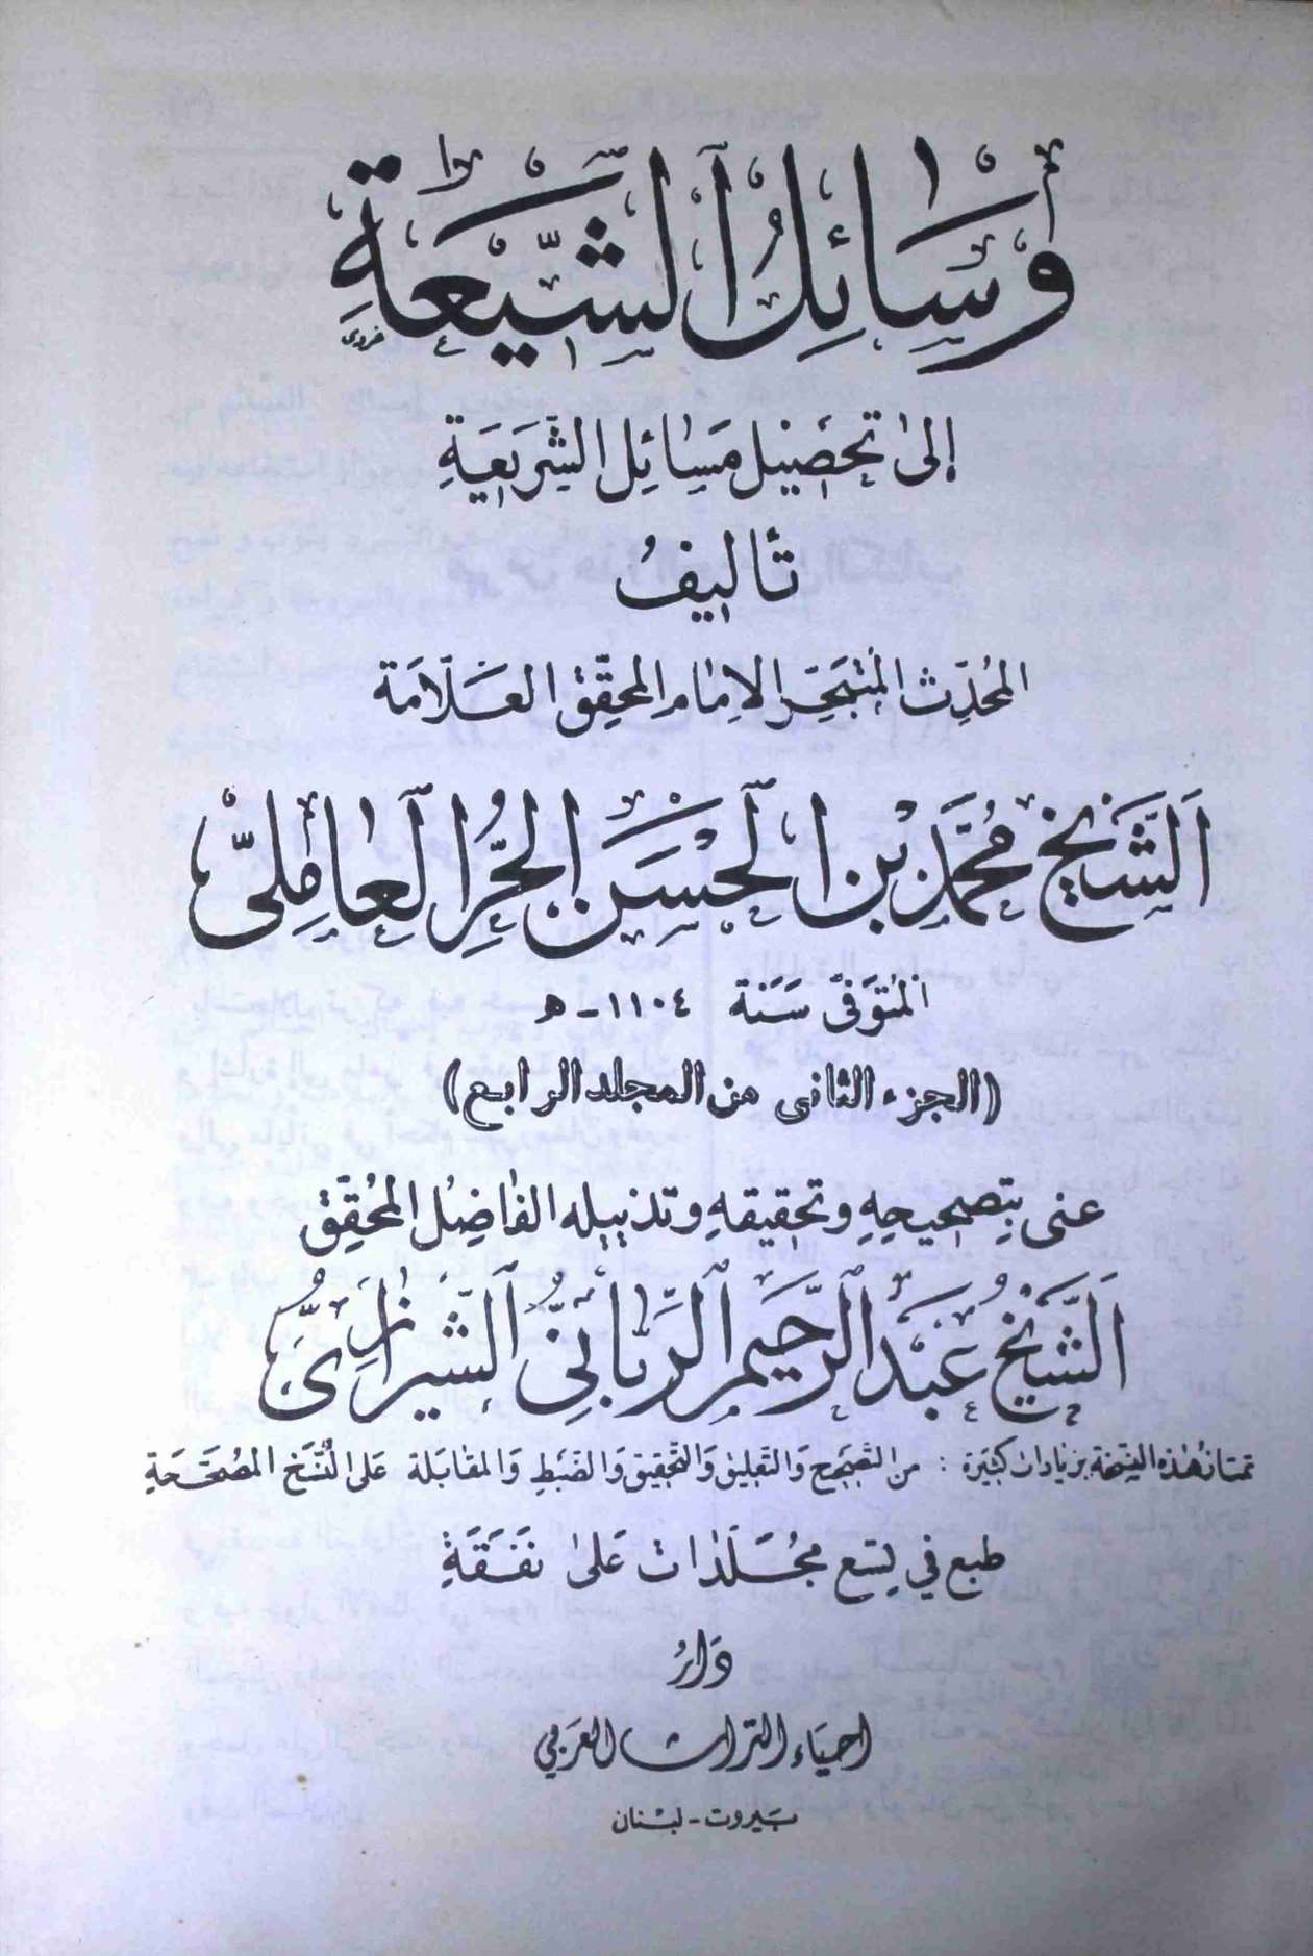 وَسَائِلُ الشِّيعَةِ
إلىٰ تحَصْيل مَسَائِل الشَّرِيعَةِ
تأليفُ
المُحدِّث المُتبَحِّر الامِام المحقِّق العَلّامَة
الشَّيخ مُحَمَّد بْن الحسَن الحُرّ العٰامِليّ
المُتوَفّى سَنَة ١١٠٤ - ه
(الجزء الثانى من المجلد الرابع)
عنى بتصحيحِهِ وتحقيقهِ وتذييله الفٰاضِل المُحقِّق
الشَّيْخُ عَبْد الرَّحيم الرَّبّٰانِيُّ الشِيرٰازيُّ
تمتاز هٰذه النسخة بزيادات كثيرة : من التصحيح وَالتّعليق وَالتحقيق وَالضبط وَالمقابَلة عَلى النُّسَخ المصُحَّحَةِ
طبع في تِسَع مجُلّدٰات عَلىٰ نفَقَةِ
دَارُ
احيَاء التراث العَربي
بَيروت - لبنان